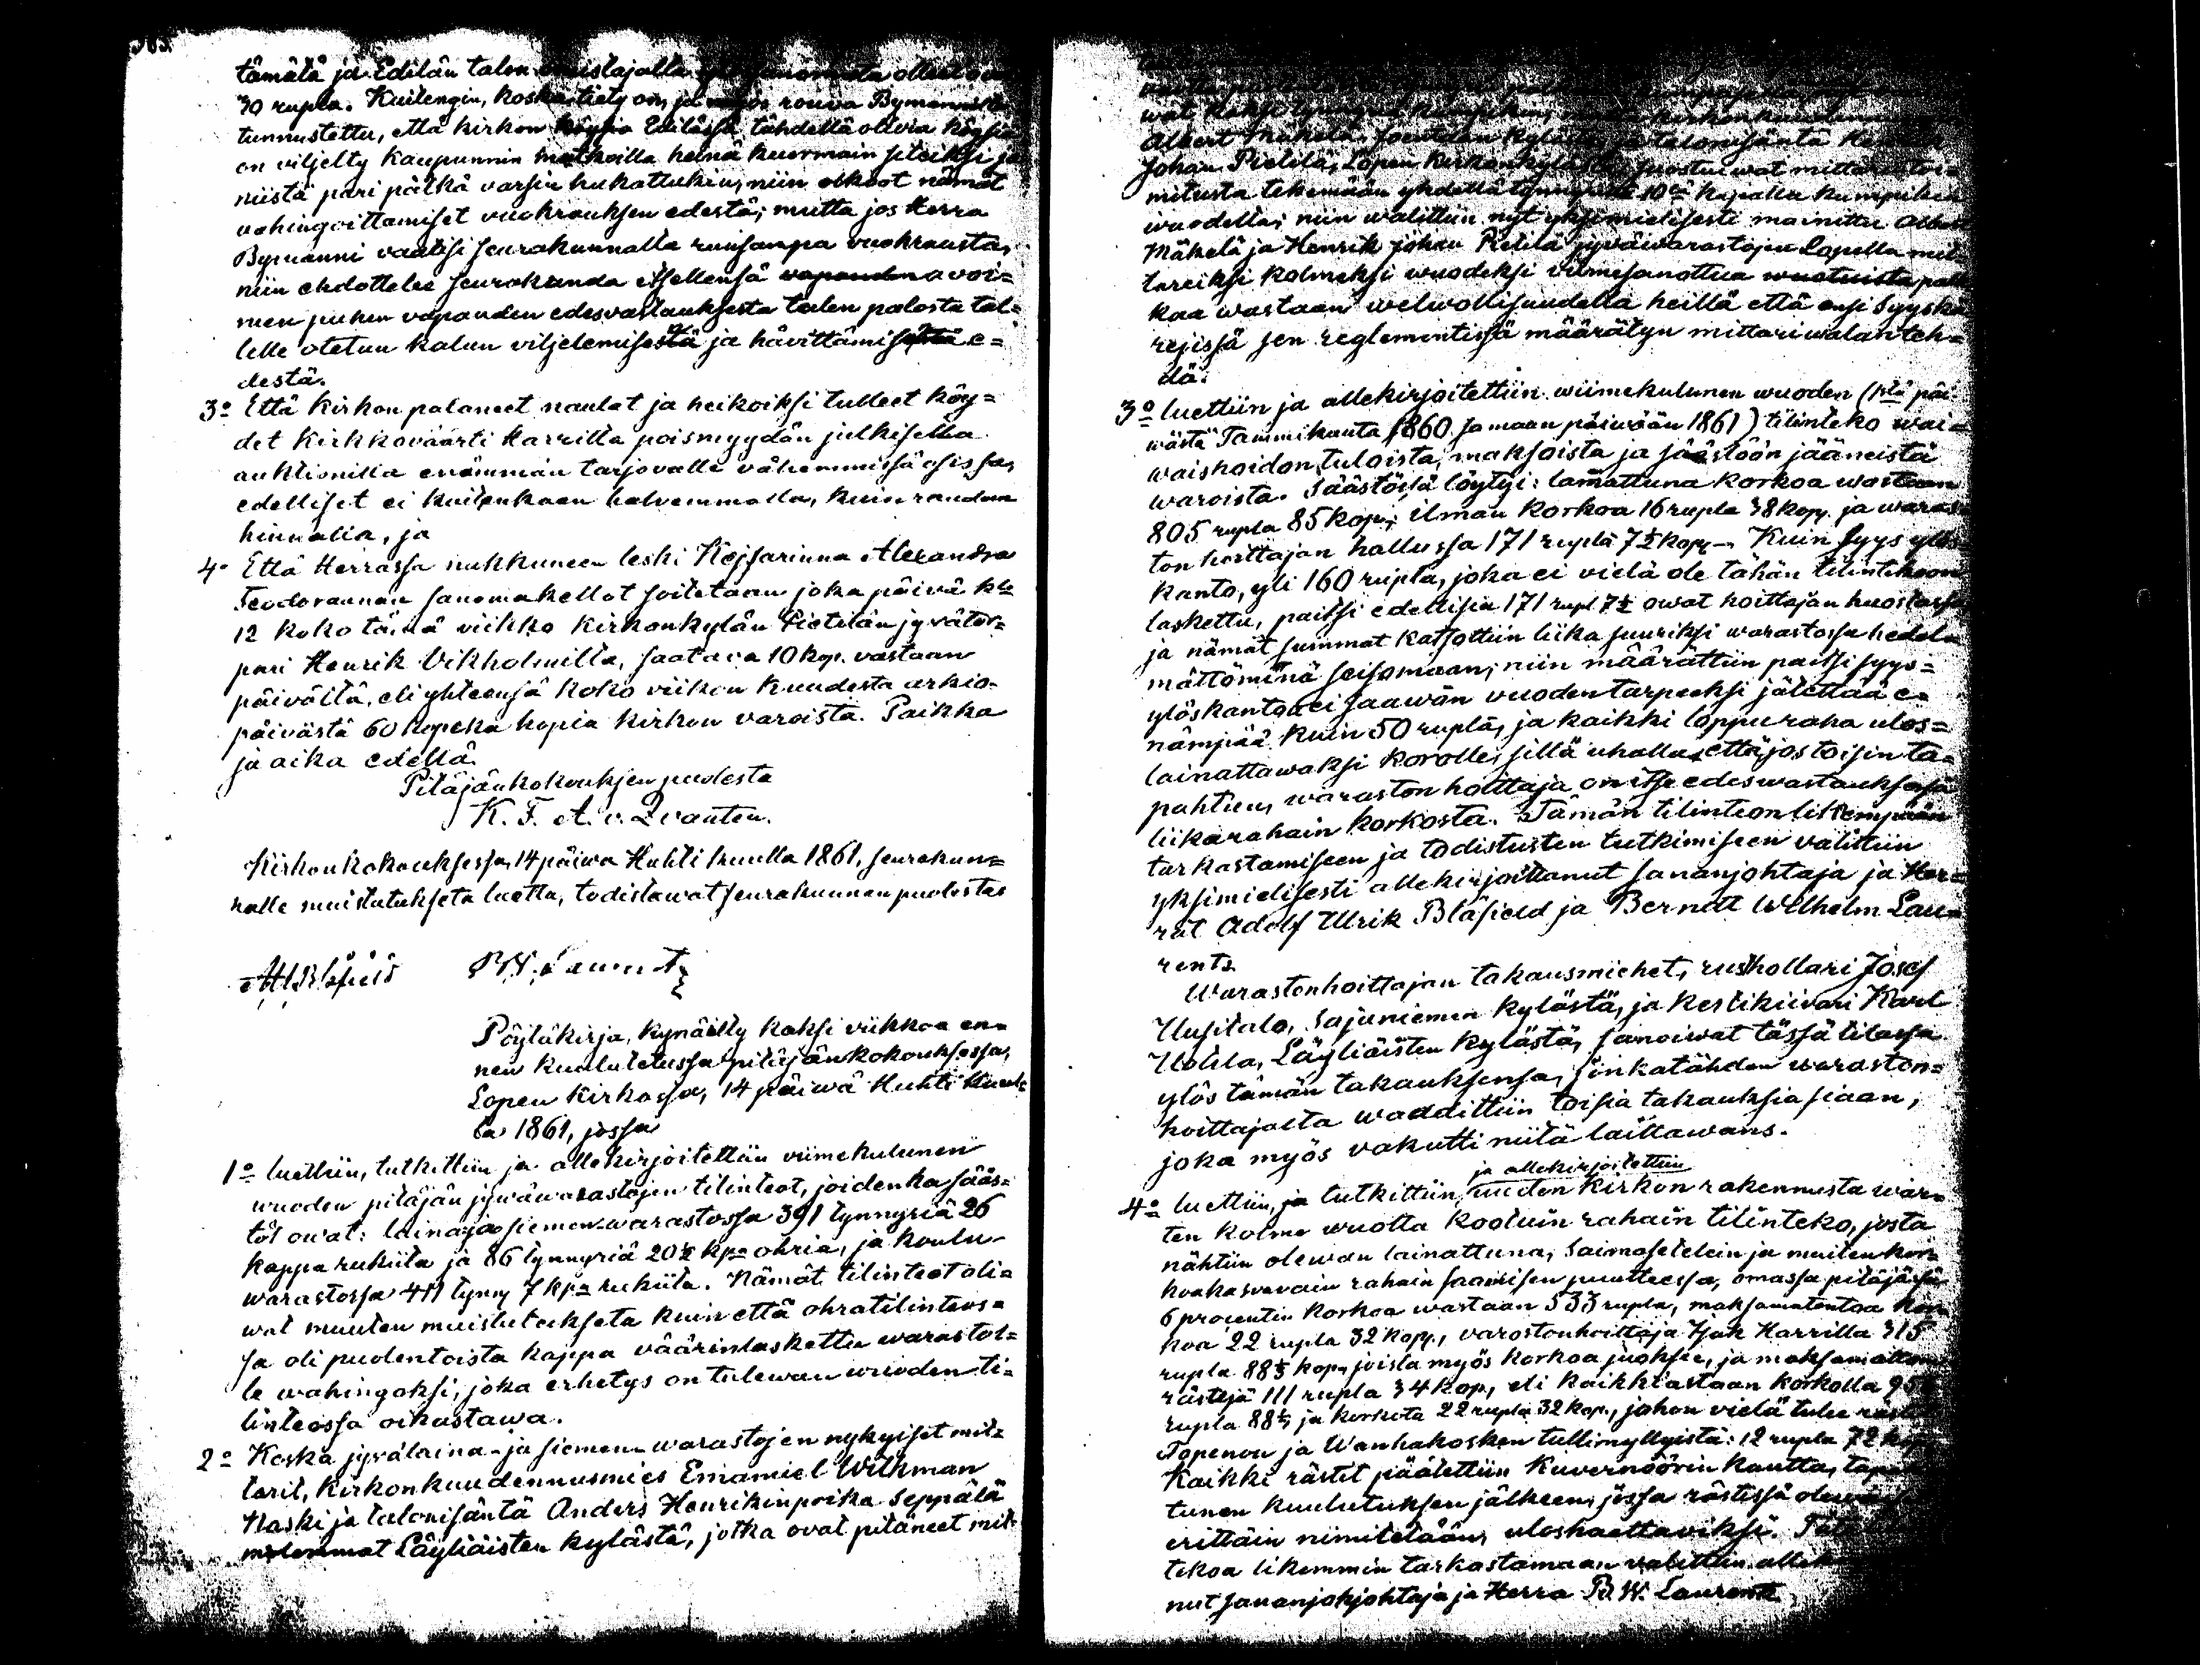 tämätä ja Edilän talon
30 rupla. Kuitengin, koska tiety on, ja rouva Bymannilta
tunnustettu, että kirkon köysiä Edilässä, tähdellä olevia köysiä
on viljelty kaupunnin matkoilla heinä kuormain siteiksi ja
niistä pari pätkä varsin hukattukin, niin olkoot nämät
vahingoittamiset vuokrauksen edestä; mutta jos Herra
Bymanni vaatisi seurakunnalta runsampa vuokrausta,
niin ehdottelee seurakunda itsellensä vapauden avoi=
men puhen vapauden edesvastauksesta talon palosta tal=
lelle otetun kalun viljelemisestä ja hävittämisestä e=
destä.
3o Että Kirkon palaneet naulat ja heikoiksi tulleet köy=
det Kirkkoväärti Harrilta poismyydän julkisella
auktionilla enämmän tarjovalle vähemmissä osissa,
edelliset ei kuitenkaan halvemmalla, kuin raudan
hinnalla, ja
4o Että Herrassa nukkuneen leski Keisarinna Alexandra
Teodorannan sanomakellot soitetaan joka päivä klo
12 koko tämä viikko Kirkonkylän Pietilän jyvätor=
pari Henrik Vikholmilta, saatava 10 kop. vastaan
päivältä, eli yhteensä koko viikon kuudesta arkio=
päivästä 60 kopeka hopia kirkon varoista. Paikka
ja aika edellä.
Pitäjänkokouksen puolesta
K. F. A. v. Qvanten.
Kirkonkokouksessa, 14 päiwä Huhti kuulla 1861, seurakun=
nalle muistutukseta luettu, todistawat seurakunnan puolestas
A.U. Bläfield B.W. Laurentz
Pöytäkirja, kynäilty kaksi viikkoa en=
nen kuulutetussa pitäjänkokouksessa,
Lopen Kirkossa, 14 päiwä Huhti kuul=
la 1861, jossa
1o luettiin, tutkittiin ja allekirjoitettiin viimekulunen
wuoden pitäjän jywäwarastojen tilinteot, joidenka sääs=
töt owat: lainaja siemen=warastossa 391 tynnyriä 26
kappa rukiita ja 86 tynnyriä 20½ kpa ohria, ja koulu=
warastossa 411 tynny 7 kpa rukiita. Nämät tilinteot oli=
wat muuten muistutukseta kuin että ohratilinteos=
sa oli puolentoista kappa väärinlaskettu warastol=
le wahingoksi, joka erhetys on tulewan wuoden ti=
linteossa oikastawa.
2o Koska jyvälaina= ja siemen= warastojen nykyiset mit=
tarit, Kirkonkuudennusmies Emamiel Wilkman
Naski ja talonisäntä Anders Henrikinpoika Seppälä
molemmat Läyliäisten kylästä, jotka ovat pitäneet mit=
Albert Mäkelä, kylästä, ja talonisäntä Henrik
Johan Pietilä, Lopen Kirkonkylästä, suostuiwat mittarin toi=
mitusta tekemään yhdellä tynnyrillä 10 kapalla kumpikin
wuodella; niin walittiin nyt yksimielisesti mainittu Albert
Mäkelä ja Henrik Johan Pietilä jyväwarastojen Lopella mit=
tareiksi kolmeksi wuodeksi viimesanottua wuotuista palk
kaa wastaan welwollisuudella heillä että ensi Syyskä
rejissä sen reglementissä määrätyn mittariwalan teh=
dä.
3o luettiin ja allekirjoitettiin wiimekulunen wuoden (1stä päi
wästä Tammikuuta 1860 samaan päiwään 1861) tilinteko wai=
waishoidon tuloista, maksoista ja säästöön jääneistä
waroista. Säästössä löytyi: lainattuna korkoa wastaan
805 rupla 85 kop; ilman korkoa 16 rupla 38 kopp. ja waras=
ton hoittajan hallussa 171 rupla 7½ kopp. Kuin syys ylös=
kanto, yli 160 rupla, joka ei vielä ole tähän tilintekoon
laskettu, paitsi edellisiä 171 rupl 7½ owat hoittajan huostassa
ja nämät summat katsottiin liika suuriksi warastossa hedel=
mättöminä seisomaan; niin määrättiin paitsi syys=
ylöskantoa ei saawan vuoden tarpeeksi jätettää e=
nämpää kuin 50 rupla, ja kaikki loppu raha ulos=
lainattawaksi korolle, sillä uhalla, että jos toisin ta=
pahtuu, waraston hoittaja on itse edeswastauksessa
liikarahain korkosta. Tämän tilinteon likempään
tarkastamiseen ja todistusten tutkimiseen valittiin
yksimielisesti allekirjoittanut sananjohtaja ja Her=
rat Adolf Ulrik Bläfield ja Berndt Wilhelm Lau=
rents.
Warastonhoittajan takausmiehet, rusthollari Josef
Uusitalo, Sajaniemen kylästä, ja kestikiivari Karl
Uotila, Läyliäisten kylästä, sanoiwat tässä tilassa
ylös tämän takauksensa, jonkatähden waraston=
hoittajalta waadittiin toisia takauksia siaan,
joka myös vakutti niitä laittawans.
ja allekirjoitettiin
4o luettiin, ja tutkittiin, uuden Kirkon rakennusta war=
ten kolme wuotta kootuin rahain tilinteko, josta
nähtiin olewan lainattuna, Saimasetelein ja muiten kor=
kookasvavain rahain saamisen puutteessa, omassa pitäjässä
6 procentin korkoa wastaan 533 rupla, maksamatonta kor=
koa 22 rupla 32 kopp., varastonhoittaja Isak Harrilla 315
rupla 88½ kop, joista myös korkoa juoksee, ja maksamattomi
rästejä 111 rupla 34 kop, eli kaikkiastaan korkolla 95
rupla 88½, ja korkota 22 rupla 32 kop., johon vielä tulee
Topenon ja Wanhakosken tullimyllyistä: 12 rupla 72 kop
Kaikki rästit päätettiin Kuvernöörin kautta, tapah
tunen kuulutuksen jälkeen, jossa rästissä
erittäin nimitetään, uloshaettaviksi.
tekoa likemmin tarkastamaan valittiin allek
nut sananjohjohtaja ja Herra B. W. Laurentz